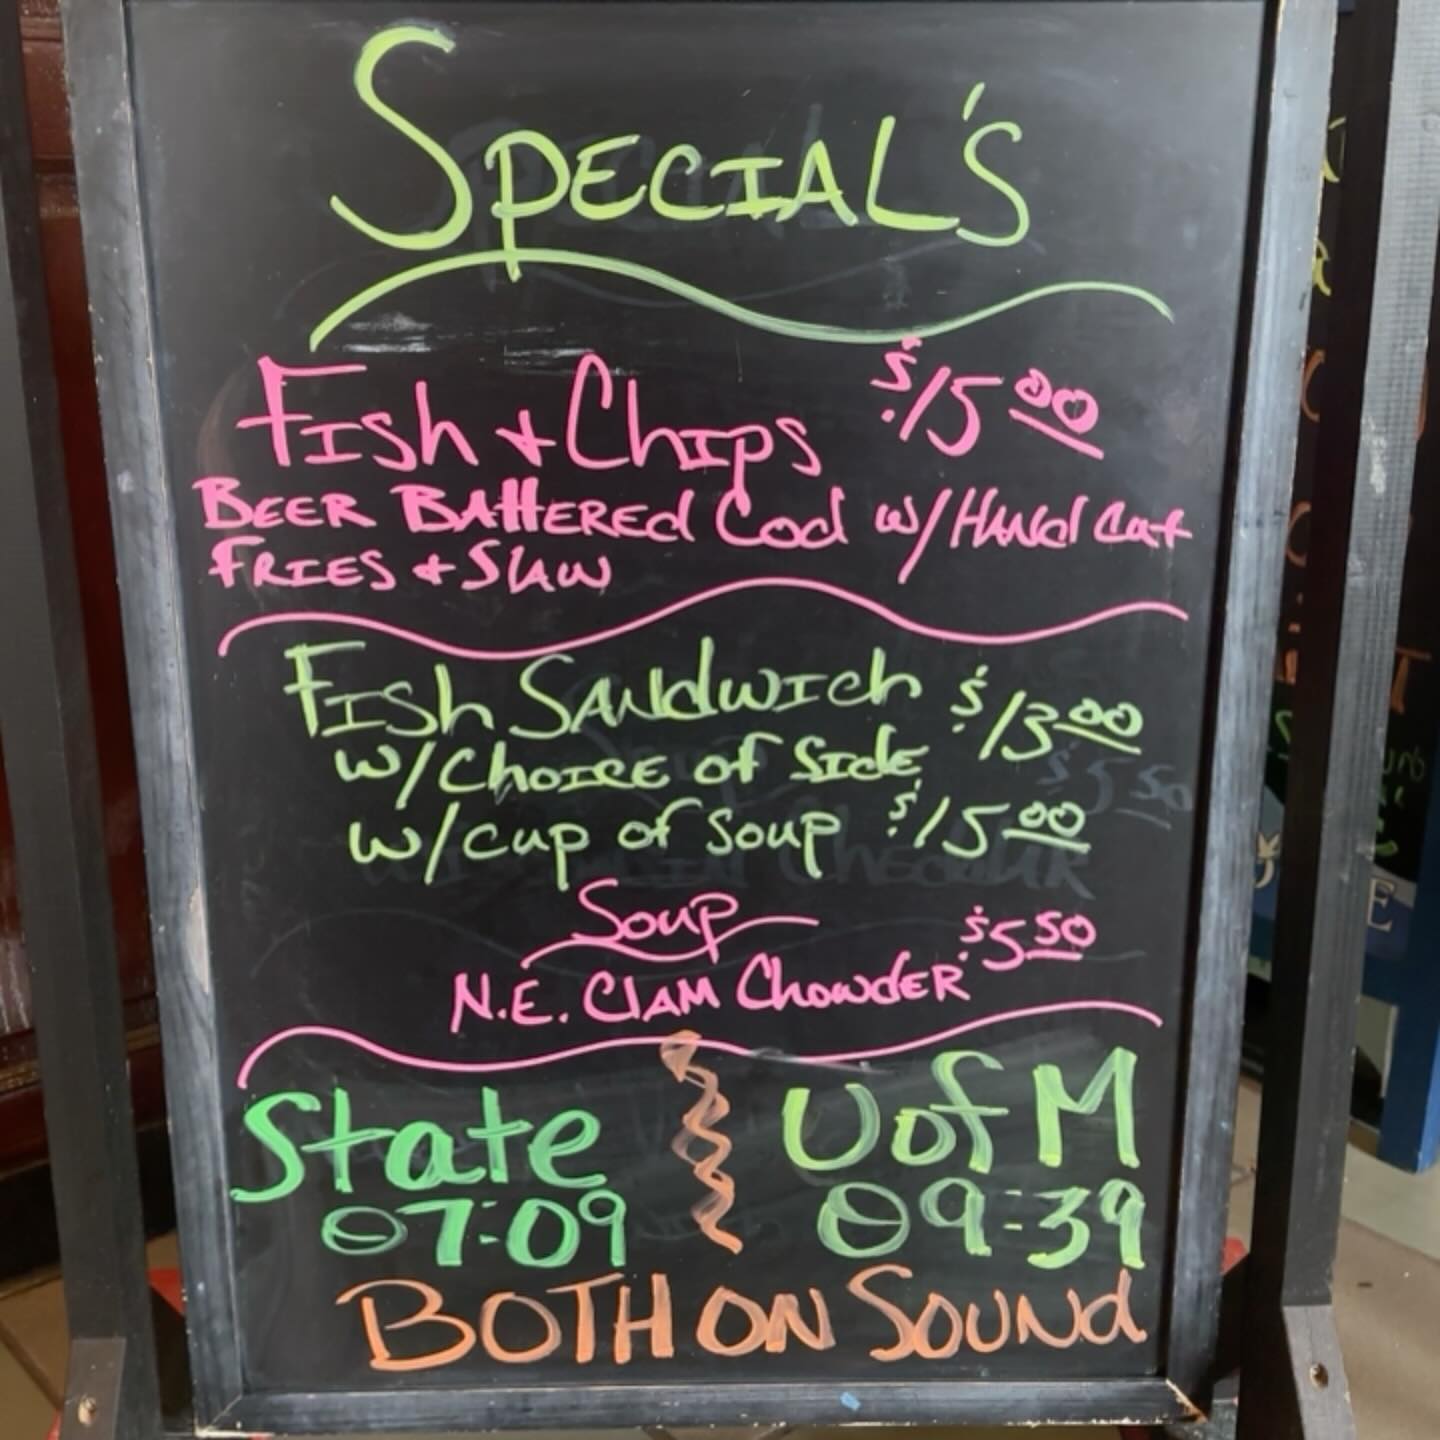 SPECIAL'S
FISh + ChIPS $15.00
BEER BAttERED Cod w/HANd Cut
FRIES + SlAW
FISh SANdWICh $13.00
W/ChOICE of SidE
W/Cup of Soup $15.00
Soup
N.E. ClAM ChowdER $5.50
State UofM
@7:09 @9:39
BOTH ON SOUNd